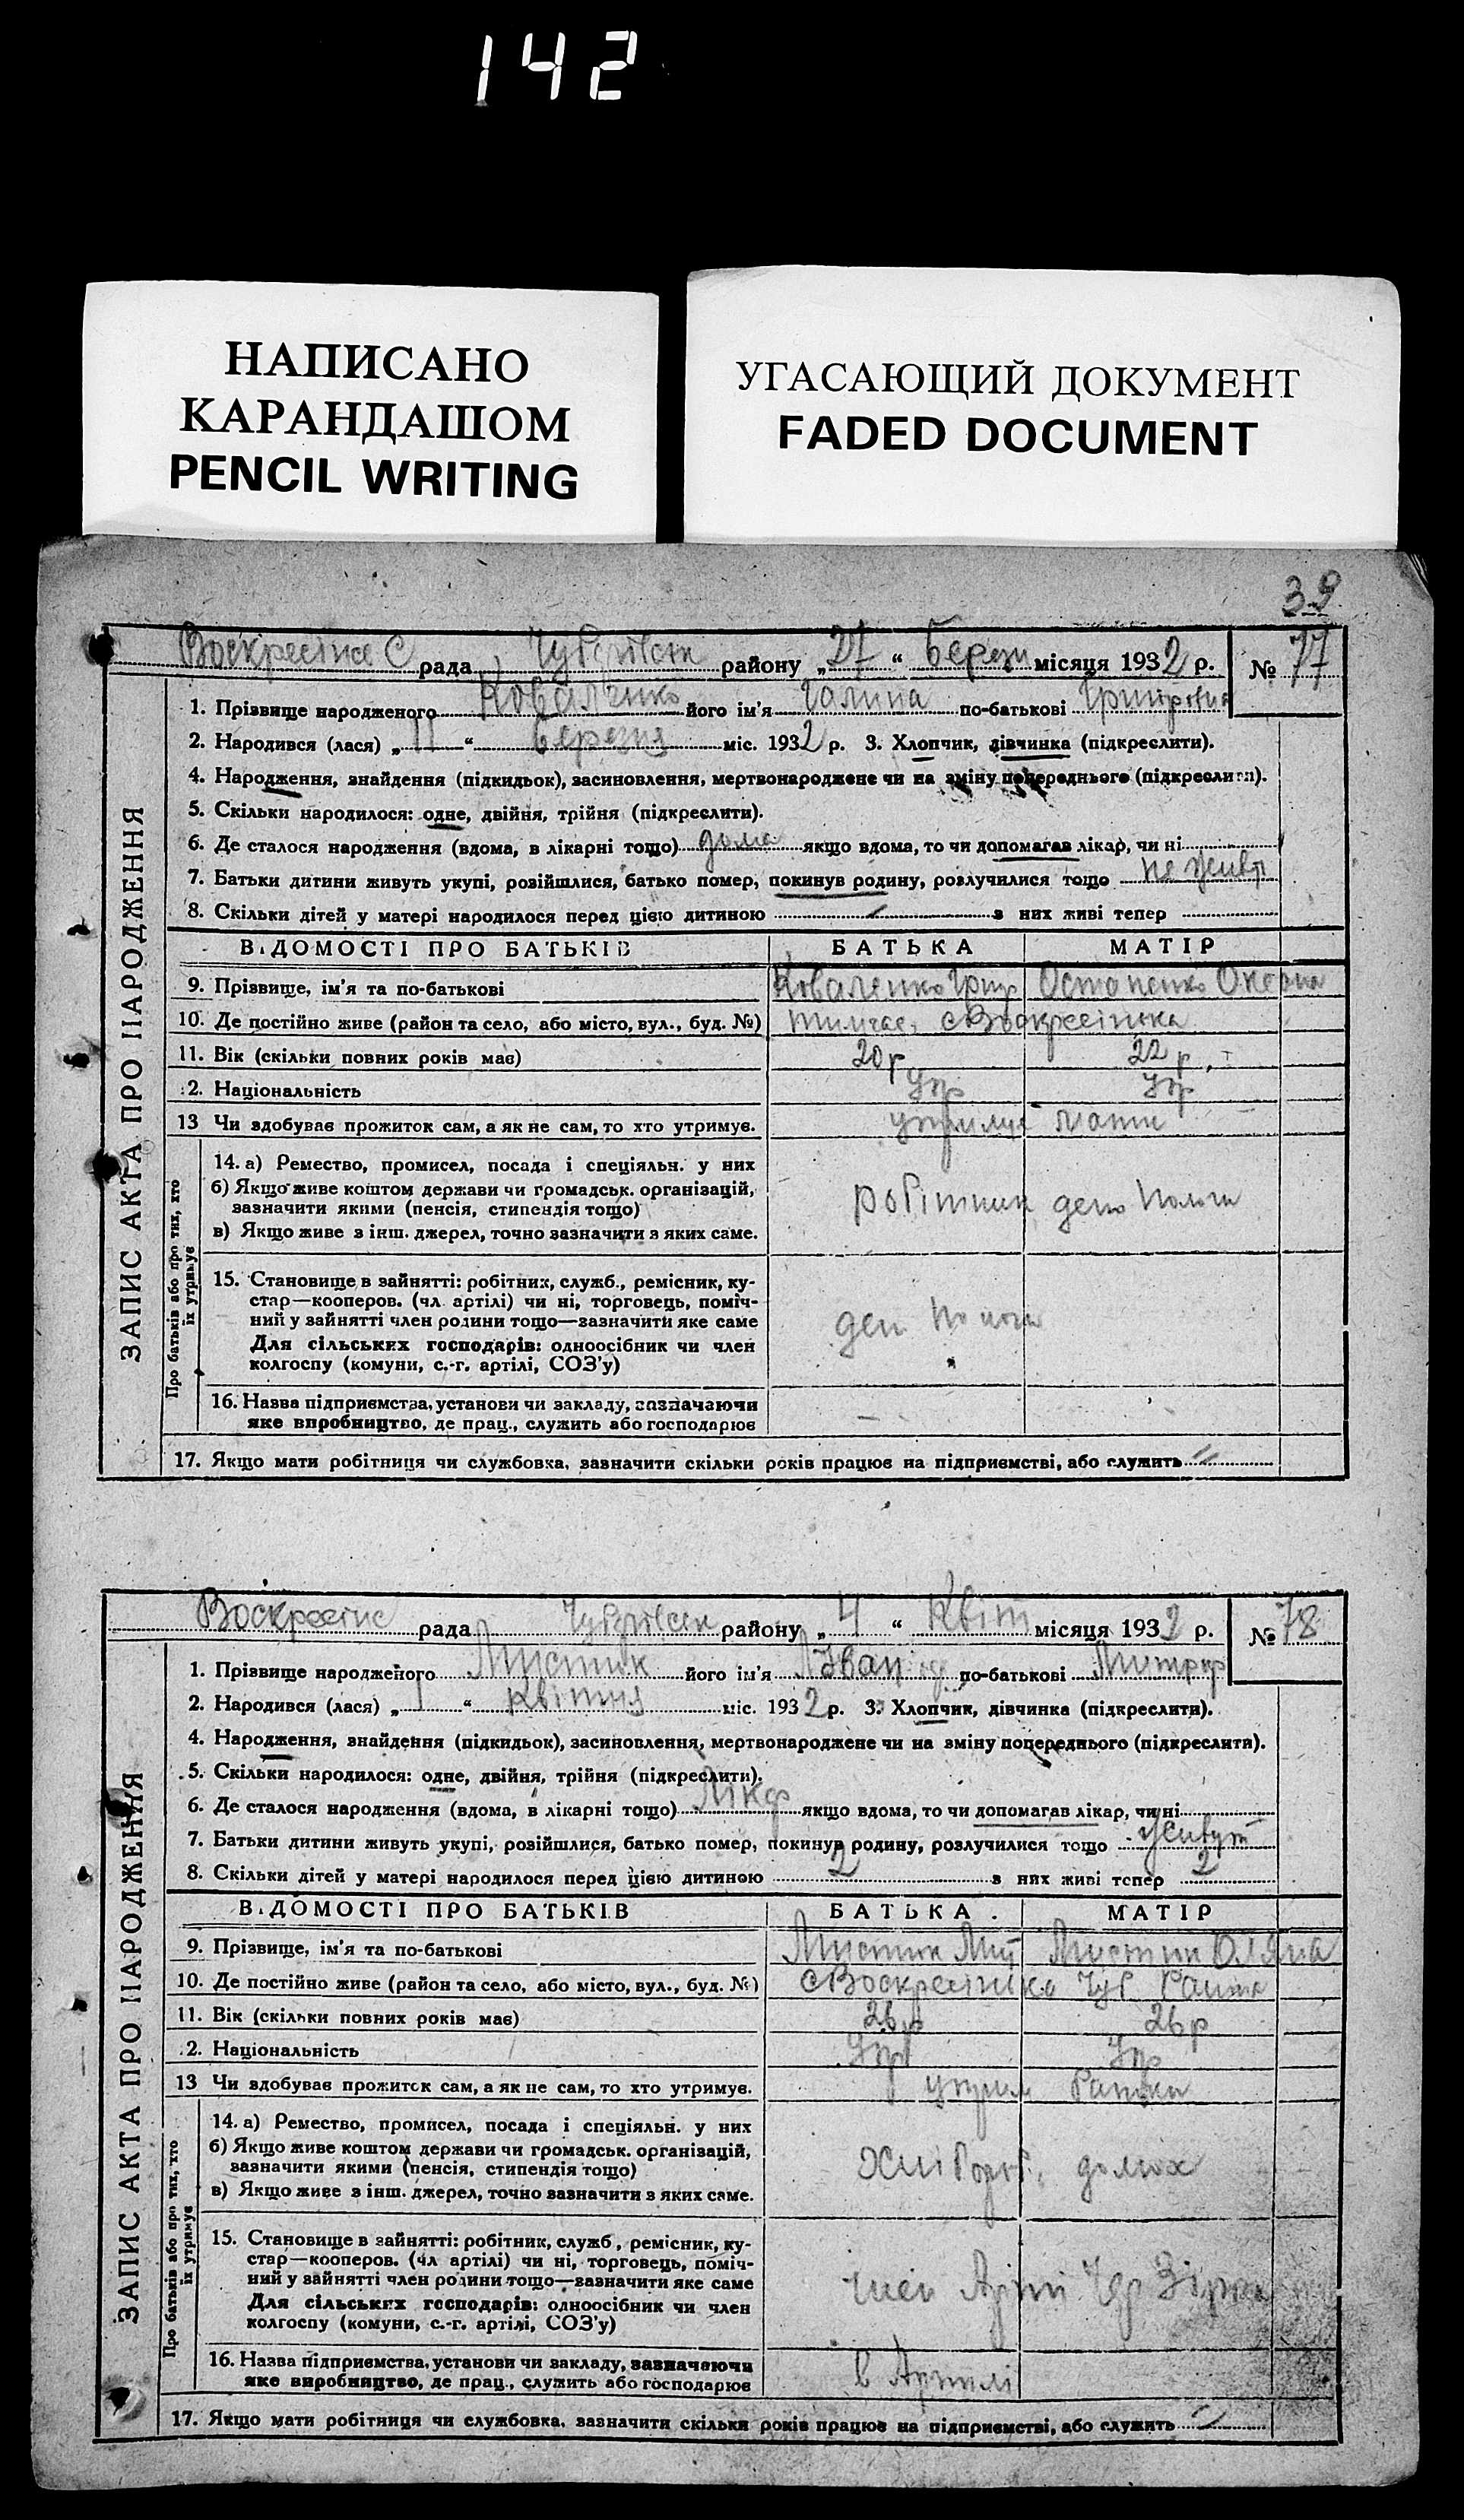 142
НАПИСАНО
КАРАНДАШОМ
PENCIL WRITING
УГАСАЮЩИЙ ДОКУМЕНТ
FADED DOCUMENT
39
ЗАПИС АКТА ПРО НАРОДЖЕННЯ
рада району „27“ Березн місяця 1932 р. № 77
1. Прізвище народженого Коваленко його ім'я Галина по-батькові
2. Народився (лася) „11“ березня міс. 1932 р. 3. Хлопчик, дівчинка (підкреслити).
4. Народження, знайдення (підкидьок), засиновлення, мертвонароджене чи на зміну попереднього (підкреслити).
5. Скільки народилося: одне, двійня, трійня (підкреслити).
6. Де сталося народження (вдома, в лікарні тощо) дома якщо вдома, то чи допомагав лікар, чи ні
7. Батьки дитини живуть укупі, розійшлися, батько помер, покинув родину, розлучилися тощо не живут
8. Скільки дітей у матері народилося перед цією дитиною з них живі тепер
ВІДОМОСТІ ПРО БАТЬКІВ БАТЬКА МАТІР
9. Прізвище, ім'я та по-батькові Коваленко Григ Остапенко Оксана
10. Де постійно живе (район та село, або місто, вул., буд. №) с Воскресінка
11. Вік (скільки повних років має) 20 р 22 р
12. Національність Укр Укр
13 Чи здобуває прожиток сам, а як не сам, то хто утримує. мати
Про батьків або про тих, хто їх утримує
14. а) Ремество, промисел, посада і спеціяльн. у них
б) Якщо живе коштом держави чи громадськ. організацій,
зазначити якими (пенсія, стипендія тощо) робітник
в) Якщо живе з інш. джерел, точно зазначити з яких саме.
15. Становище в зайнятті: робітник, служб., ремісник, ку-
стар—кооперов. (чл. артілі) чи ні, торговець, поміч-
ний у зайнятті член родини тощо—зазначити яке саме
Для сільських господарів: одноосібник чи член
колгоспу (комуни, с.-г. артілі, СОЗ'у)
16. Назва підприємства, установи чи закладу, зазначаючи
яке виробництво, де прац., служить або господарює
17. Якщо мати робітниця чи службовка, зазначити скільки років працює на підприємстві, або служить
ЗАПИС АКТА ПРО НАРОДЖЕННЯ
Воскресінс рада району „4“ Квіт місяця 1932 р. № 78
1. Прізвище народженого його ім'я Іван по-батькові
2. Народився (лася) „1“ квітня міс. 1932 р. 3. Хлопчик, дівчинка (підкреслити).
4. Народження, знайдення (підкидьок), засиновлення, мертвонароджене чи на зміну попереднього (підкреслити).
5. Скільки народилося: одне, двійня, трійня (підкреслити).
6. Де сталося народження (вдома, в лікарні тощо) якщо вдома, то чи допомагав лікар, чи ні
7. Батьки дитини живуть укупі, розійшлися, батько помер, покинув родину, розлучилися тощо живут
8. Скільки дітей у матері народилося перед цією дитиною 2 з них живі тепер 2
ВІДОМОСТІ ПРО БАТЬКІВ БАТЬКА МАТІР
9. Прізвище, ім'я та по-батькові
10. Де постійно живе (район та село, або місто, вул., буд. №) с Воскресінка
11. Вік (скільки повних років має) 26 р 26 р
12. Національність Укр Укр
13 Чи здобуває прожиток сам, а як не сам, то хто утримує.
Про батьків або про тих, хто їх утримує
14. а) Ремество, промисел, посада і спеціяльн. у них
б) Якщо живе коштом держави чи громадськ. організацій,
зазначити якими (пенсія, стипендія тощо)
в) Якщо живе з інш. джерел, точно зазначити з яких саме.
15. Становище в зайнятті: робітник, служб., ремісник, ку-
стар—кооперов. (чл артілі) чи ні, торговець, поміч-
ний у зайнятті член родини тощо—зазначити яке саме
Для сільських господарів: одноосібник чи член
колгоспу (комуни, с.-г. артілі, СОЗ'у)
16. Назва підприємства, установи чи закладу, зазначаючи
яке виробництво, де прац., служить або господарює в Артилі
17. Якщо мати робітниця чи службовка, зазначити скільки років працює на підприємстві, або служить